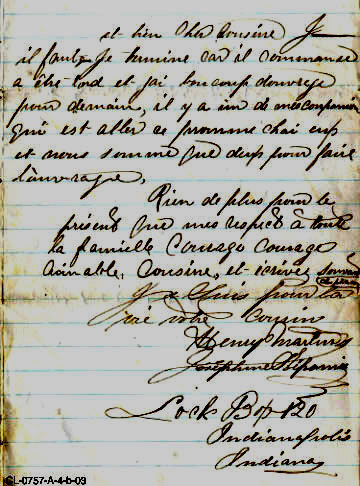 et bien cher Cousine Je
il faut Je termine car il commance
a être tard et jai boucoup douvrage
pour demain, il y a un de mes companion
qui est aller se promme chai eus
et nous somme que deus pour faire
l'ouvrage,
Rien de plus pour le
présent que mes respect à toute
la famielle Courage Courage
aimable, Cousine, et écrivez souvent
Je Suis pour la
vie votre Cousin
Henry
Joséphine
Lock Box 120
Indianapolis
Indiana
CL-0757-A-4-b-03